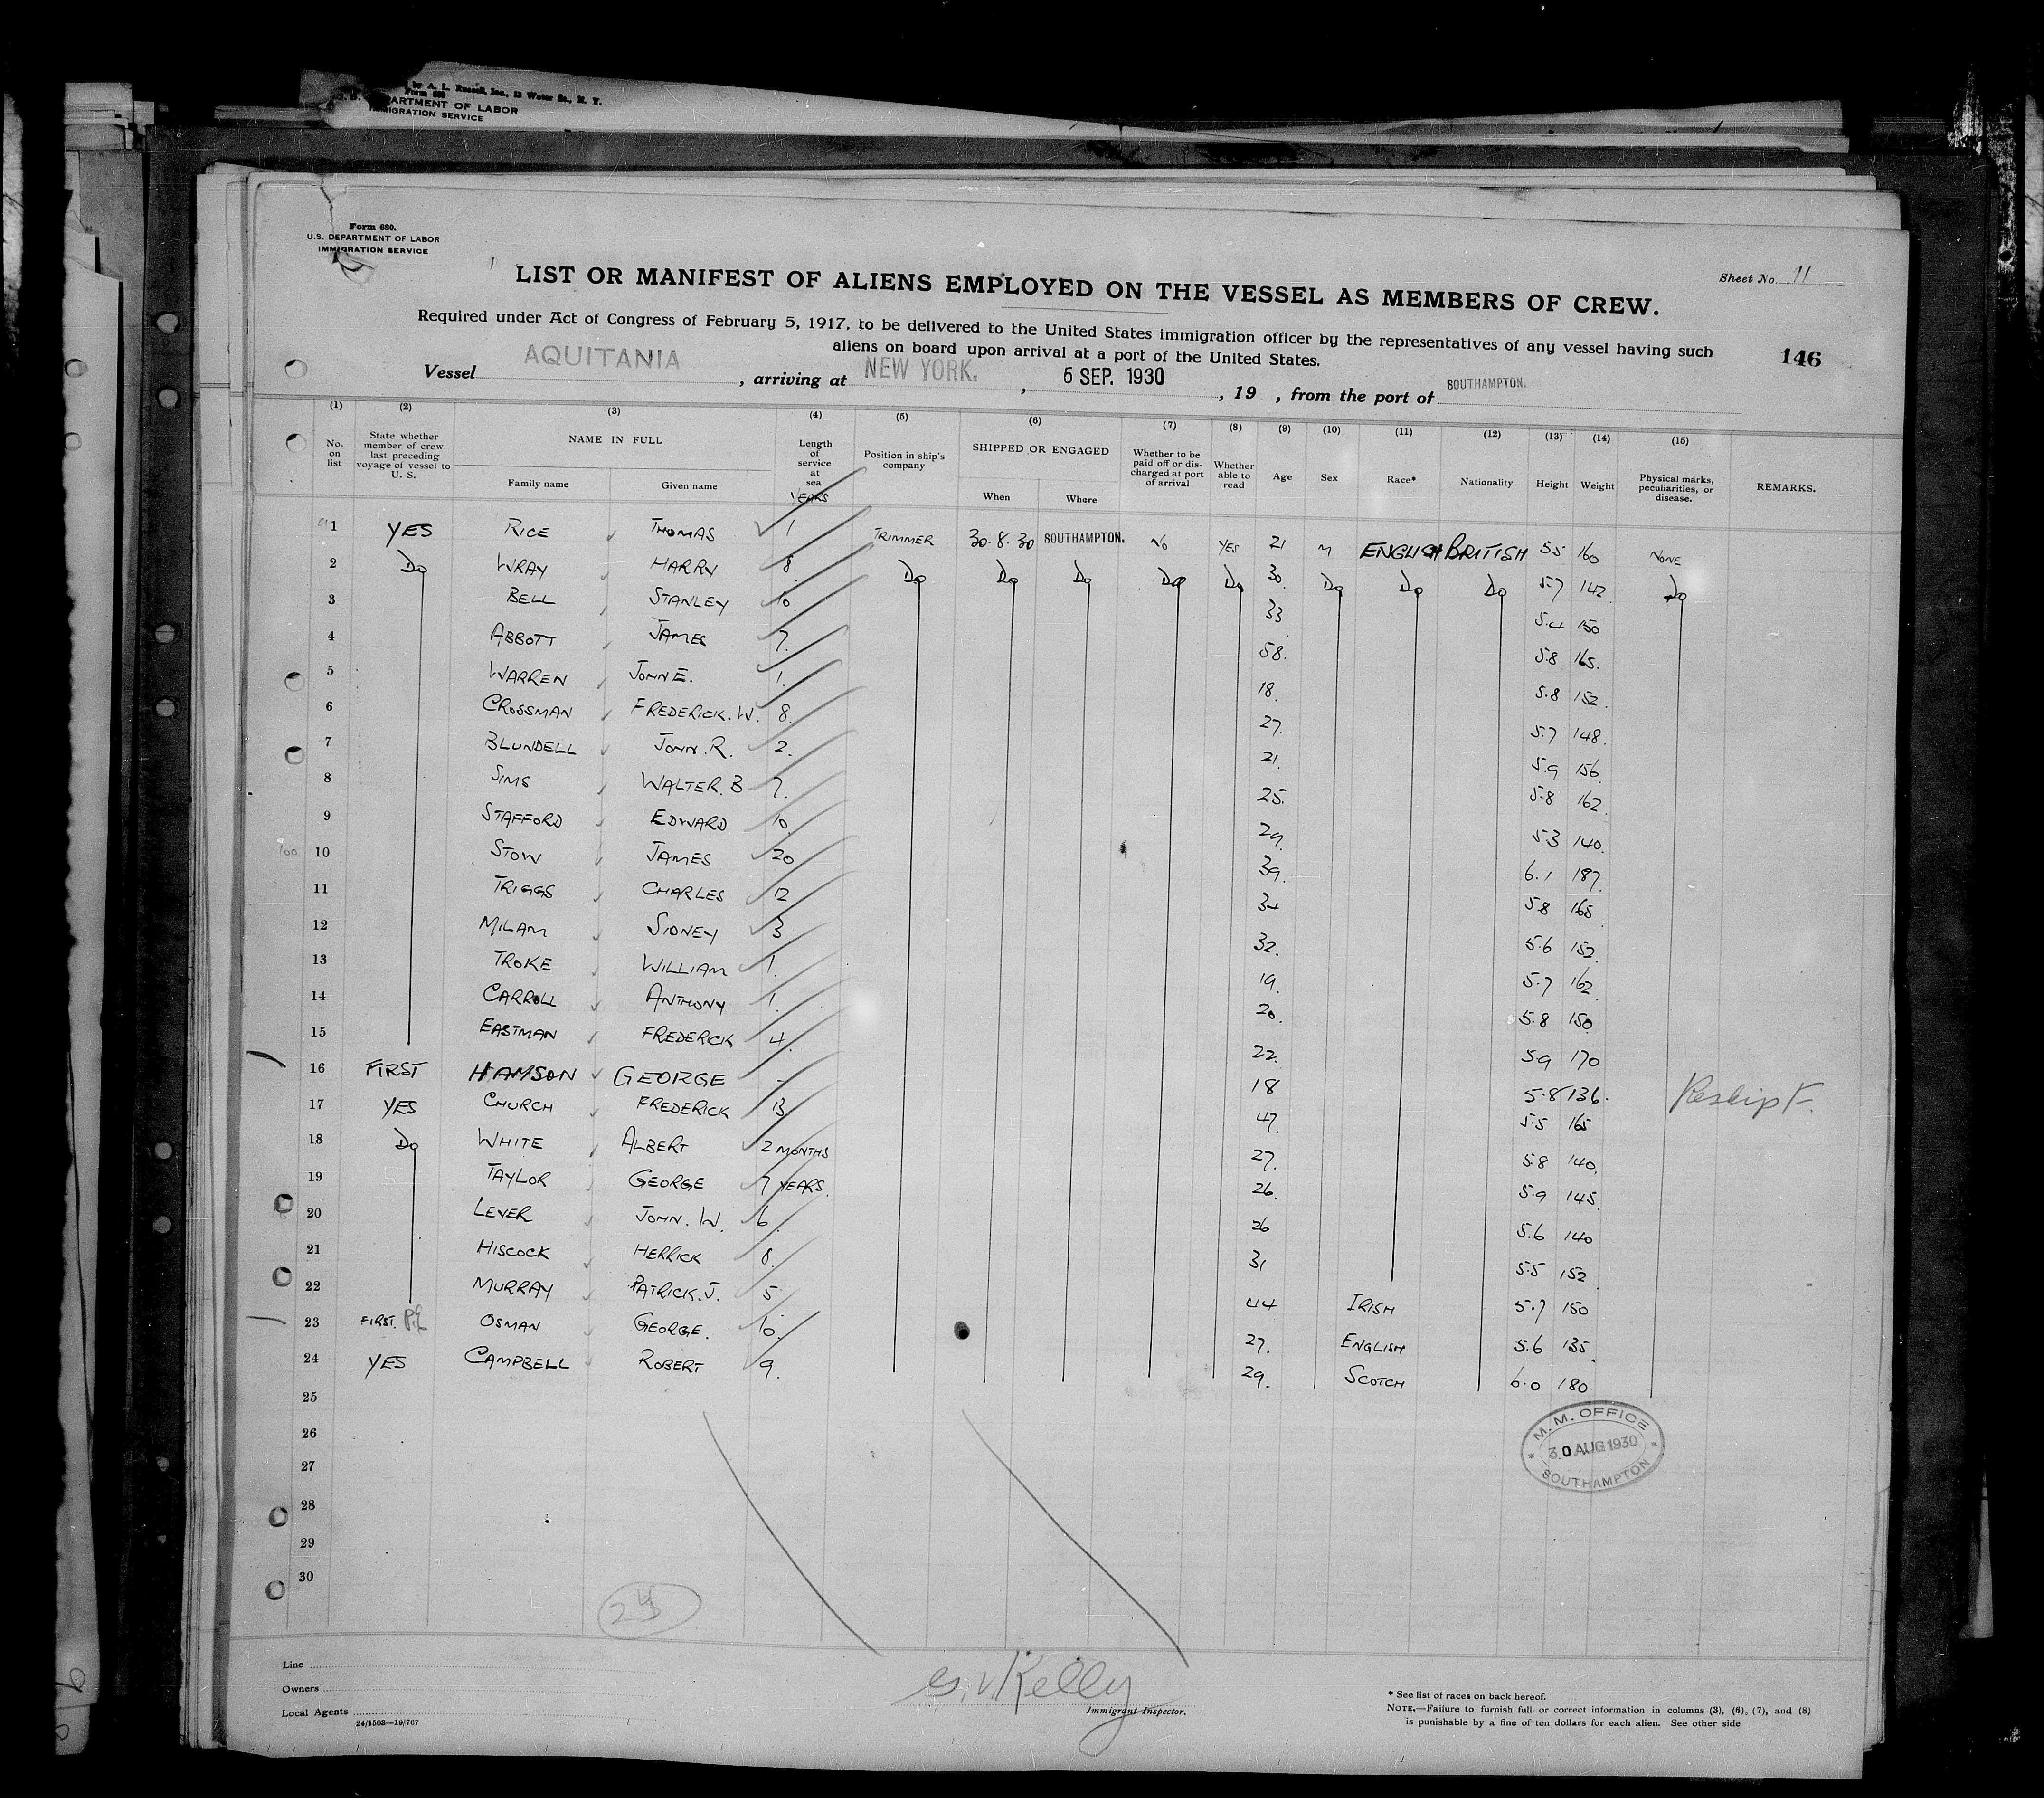 by A. L. Russell, Inc., 13 Water St., N. Y.
Form 680
DEPARTMENT OF LABOR
IMMIGRATION SERVICE
Form 680.
U.S. DEPARTMENT OF LABOR
IMMIGRATION SERVICE
Sheet No. 11
LIST OR MANIFEST OF ALIENS EMPLOYED ON THE VESSEL AS MEMBERS OF CREW.
Required under Act of Congress of February 5, 1917, to be delivered to the United States immigration officer by the representatives of any vessel having such
aliens on board upon arrival at a port of the United States.
146
Vessel AQUITANIA, arriving at NEW YORK., 6 SEP. 1930, 19 , from the port of SOUTHAMPTON.
(1) (2) (3) (4) (5) (6) (7) (8) (9) (10) (11) (12) (13) (14) (15)
No. on list State whether member of crew last preceding voyage of vessel to U. S. NAME IN FULL Family name Given name Length of service at sea YEARS Position in ship's company SHIPPED OR ENGAGED When Where Whether to be paid off or discharged at port of arrival Whether able to read Age Sex Race* Nationality Height Weight Physical marks, peculiarities, or disease. REMARKS.
1 YES RICE THOMAS 1 TRIMMER 30.8.30 SOUTHAMPTON. NO YES 21 M ENGLISH BRITISH 5.5 160 NONE
2 Do WRAY HARRY 8 Do Do Do Do Do 30. Do Do Do 5.7 142. Do
3 BELL STANLEY 10. 33 5.4 150
4 ABBOTT JAMES 7. 58. 5.8 165.
5 WARREN JOHN E. 1. 18. 5.8 152.
6 CROSSMAN FREDERICK. W. 8. 27. 5.7 148.
7 BLUNDELL JOHN. R. 2. 21. 5.9 156.
8 SIMS WALTER. B 7. 25. 5.8 162.
9 STAFFORD EDWARD 10. 29. 5.3 140.
10 STOW JAMES 20 39. 6.1 187.
11 TRIGGS CHARLES 12 34 5.8 165
12 MILAM SIDNEY 3. 32. 5.6 152.
13 TROKE WILLIAM 1. 19. 5.7 162.
14 CARROLL ANTHONY 1. 20. 5.8 150
15 EASTMAN FREDERICK 4. 22. 5.9 170
16 FIRST HAMSON GEORGE - 18 5.8 136.
17 YES CHURCH FREDERICK 13 47. 5.5 165
18 Do WHITE ALBERT 2 MONTHS 27. 5.8 140.
19 TAYLOR GEORGE 7 YEARS. 26. 5.9 145.
20 LEVER JOHN. W. 6. 26 5.6 140
21 HISCOCK HERRICK 8. 31 5.5 152
22 MURRAY PATRICK. J. 5 44 IRISH 5.7 150
23 FIRST. OSMAN GEORGE. 10. 27. ENGLISH 5.6 135.
24 YES CAMPBELL ROBERT 9. 29. SCOTCH 6.0 180
25
26
27
28
29
30
M. M. OFFICE
30 AUG 1930
SOUTHAMPTON
Line
Owners
Local Agents
24/1503—19/767
Kelly
Immigrant Inspector.
* See list of races on back hereof.
NOTE.—Failure to furnish full or correct information in columns (3), (6), (7), and (8)
is punishable by a fine of ten dollars for each alien. See other side